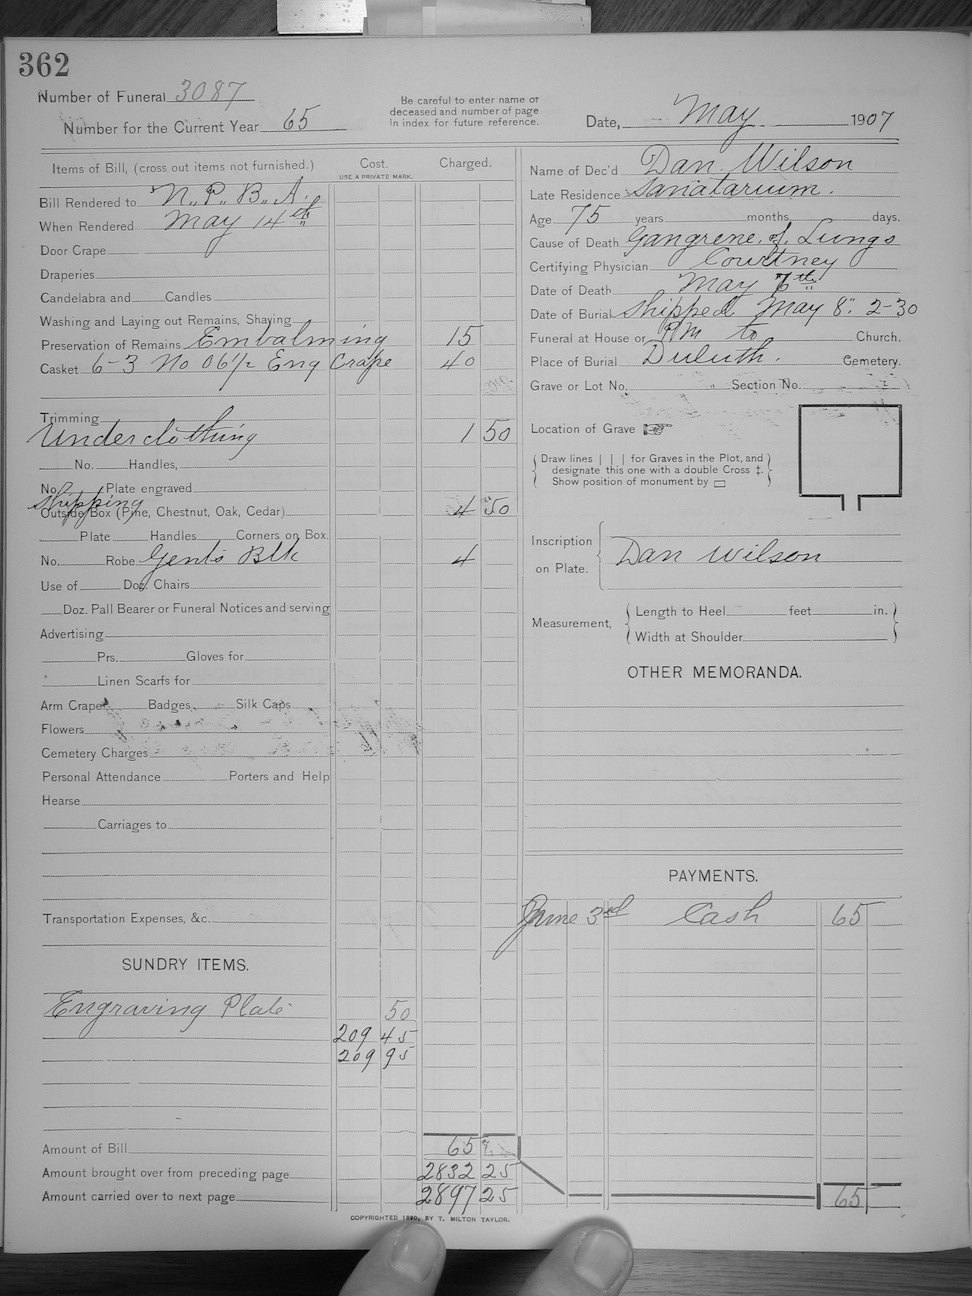 362
Number of Funeral 3087
Number for the Current Year 65
Be careful to enter name of
deceased and number of page
in index for future reference.
Date, May 1907
Items of Bill, (cross out items not furnished.) Cost. Charged.
USE A PRIVATE MARK.
Bill Rendered to N.. P.. B.. A.
When Rendered May 14th
Door Crape
Draperies
Candelabra and Candles
Washing and Laying out Remains, Shaving
Preservation of Remains Embalming 15
Casket 6-3 No 06½ Eng Crape 40
Trimming
Underclothing 1 50
No. Handles,
No. Plate engraved
Shipping
Outside Box (Pine, Chestnut, Oak, Cedar) 4 50
Plate Handles Corners on Box.
No. Robe Gents Blk 4
Use of Doz. Chairs
Doz. Pall Bearer or Funeral Notices and serving
Advertising
Prs. Gloves for
Linen Scarfs for
Arm Crape Badges, Silk Caps
Flowers
Cemetery Charges
Personal Attendance Porters and Help
Hearse
Carriages to
Transportation Expenses, &c.
SUNDRY ITEMS.
Engraving Plate 50
209 45
209 95
Amount of Bill 65
Amount brought over from preceding page 2832 25
Amount carried over to next page 2897 25
Name of Dec'd Dan. Wilson
Late Residence Sanatarium.
Age 75 years months days.
Cause of Death Gangrene. of. Lungs
Certifying Physician Courtney
Date of Death May
Date of Burial Shipped May 8" 2-30
Funeral at House or PM to Church.
Place of Burial Duluth. Cemetery.
Grave or Lot No. Section No.
Location of Grave
Draw lines | | | for Graves in the Plot, and
designate this one with a double Cross ‡.
Show position of monument by □
Inscription
on Plate. Dan Wilson
Measurement, Length to Heel feet in.
Width at Shoulder
OTHER MEMORANDA.
PAYMENTS.
June 3rd Cash 65
65
COPYRIGHTED 1890, BY T. MILTON TAYLOR.